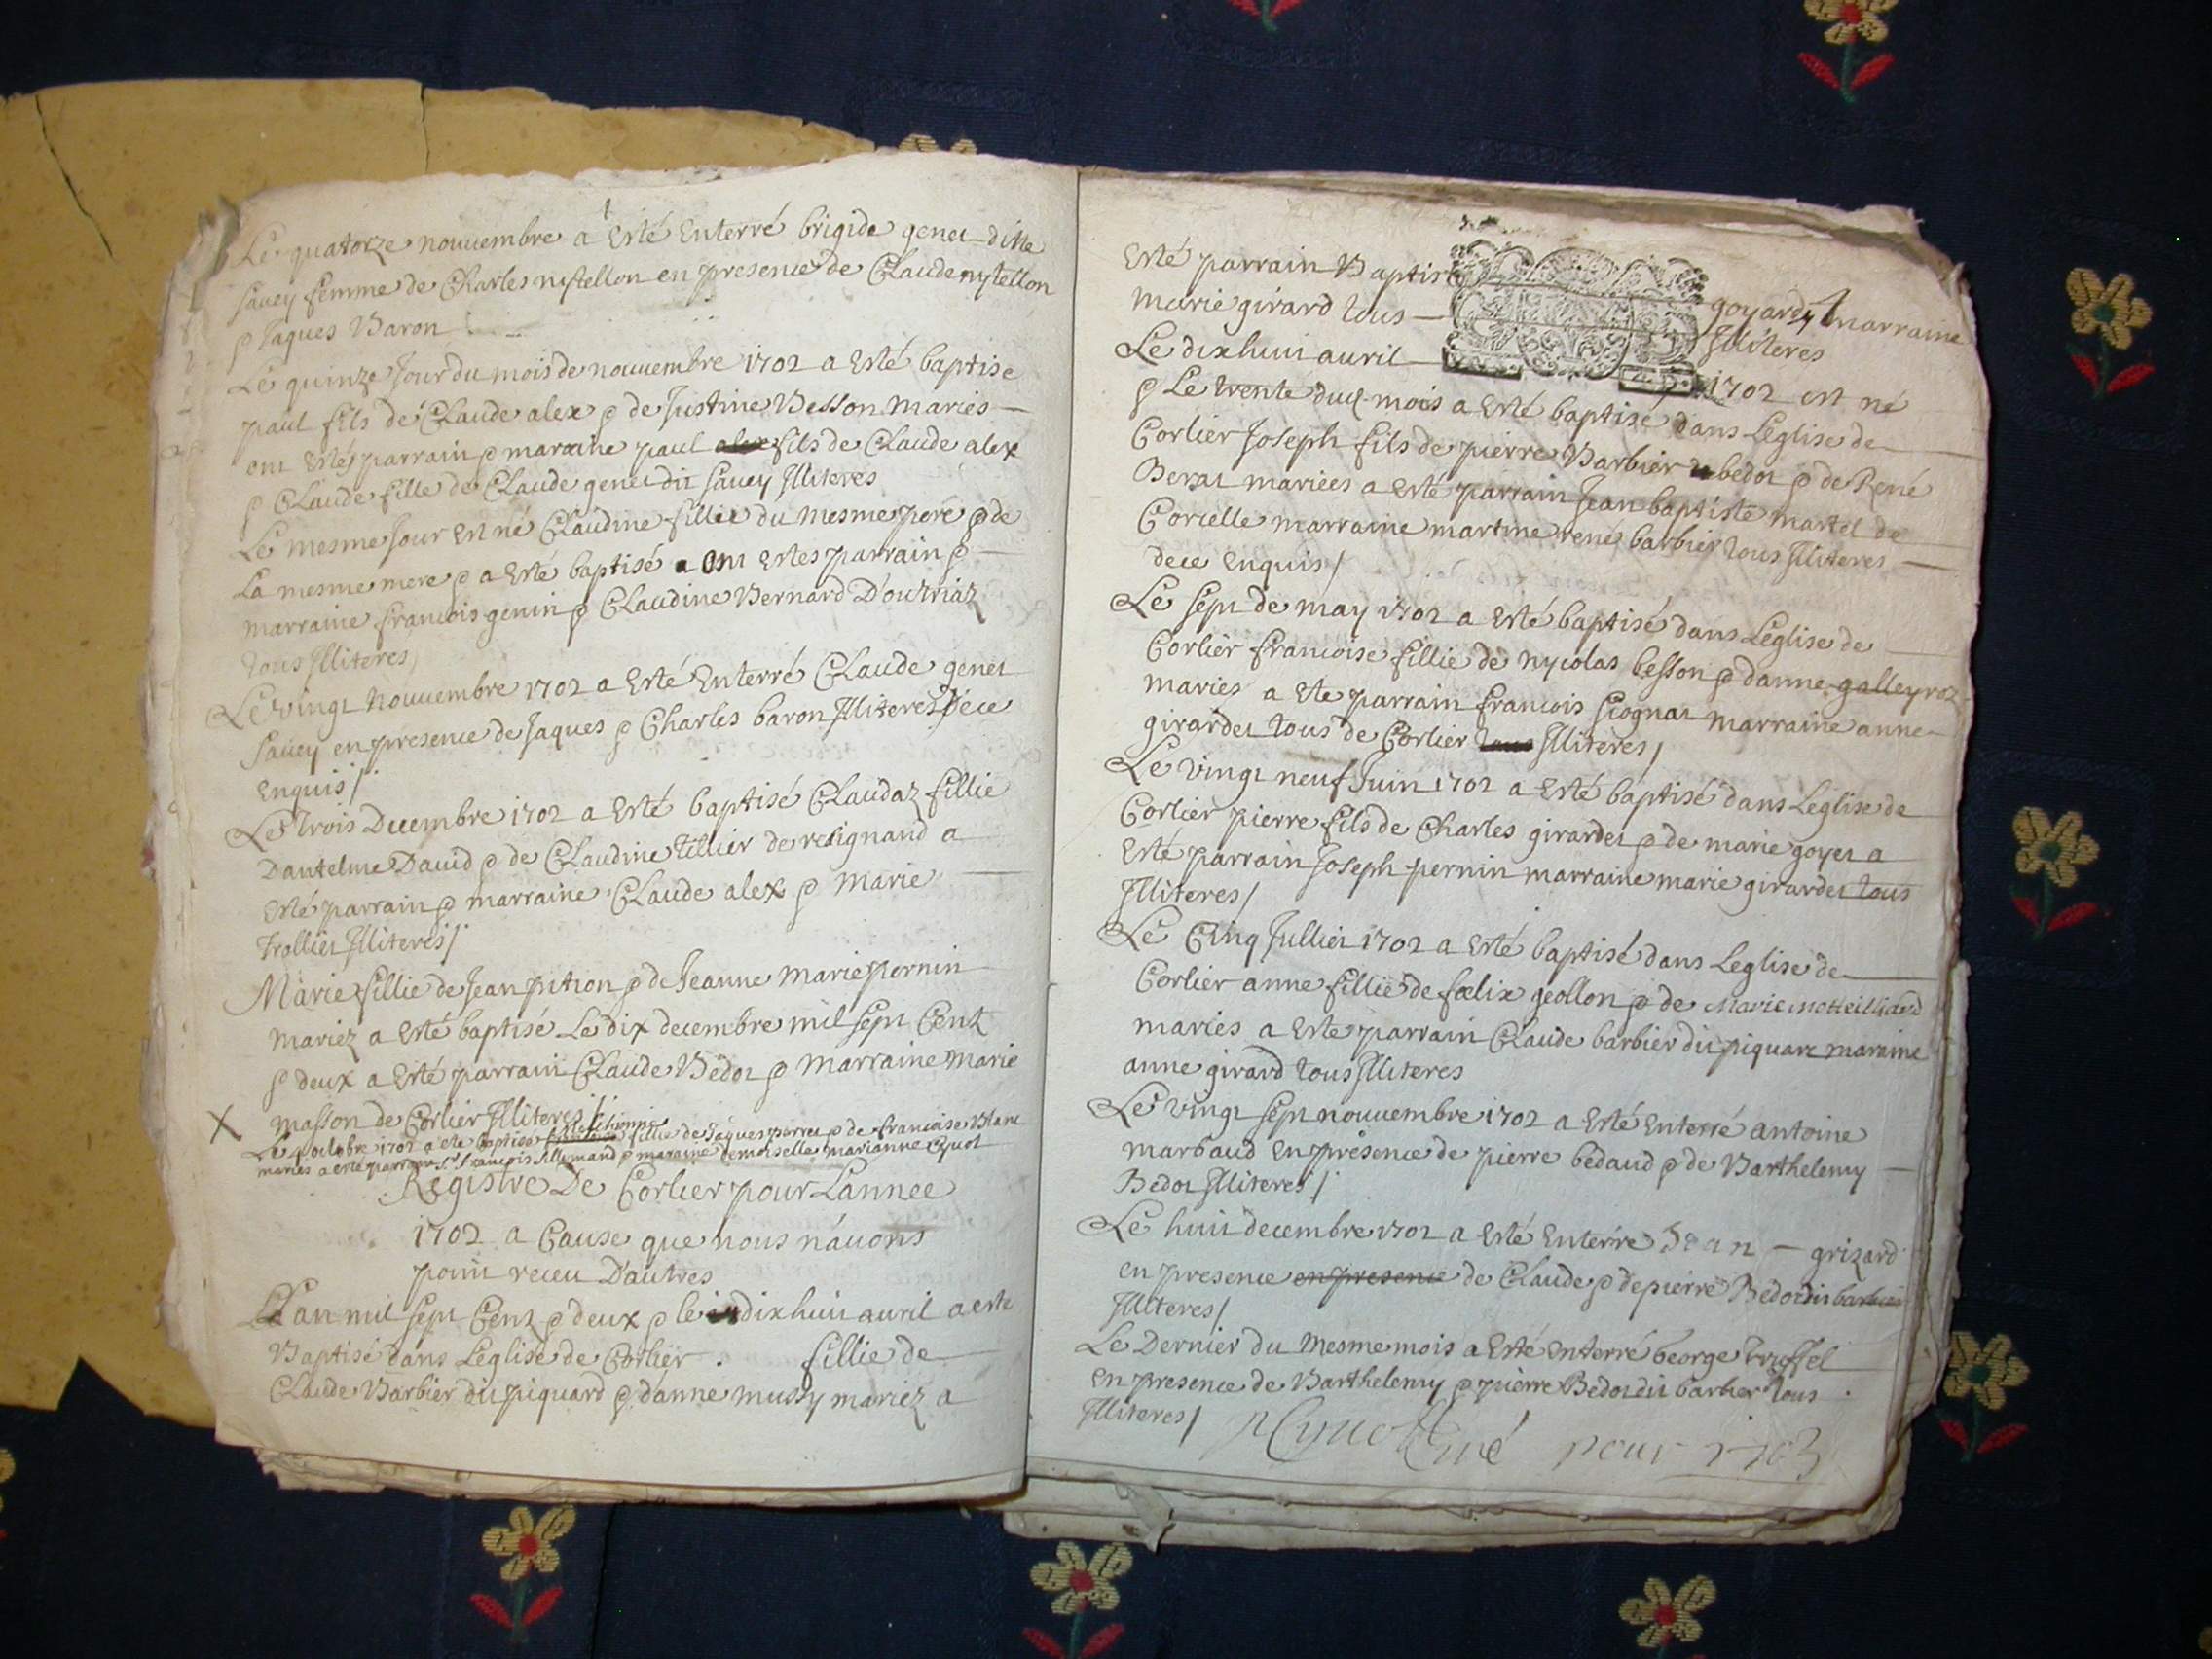 Le quatorze nouuembre a Esté Enterré brigide genet ditte
sauey femme de Charles nystellon en presence de Claude nystellon
& Jaques Baron
Le quinze Jour du mois de nouuembre 1702 a Esté baptise
paul fils de Claude alex & de Justine Besson Mariés
ont Estés parrain & maraine paul fils de Claude alex
& Claude fille de Claude genet dit sauey Illiteres
Le mesme Jour est né Claudine fillie du mesme pere & de
La mesme mere & a Esté baptisé ont Estes parrain &
marraine francois genin & Claudine Bernard D'outriaz
tous Illiteres
Le vingt nouuembre 1702 a Esté Enterré Claude genet
sauey en presence de Jaques & Charles baron Illiteres Dece
Enquis /.
Le trois Decembre 1702 a Esté baptisé Claudaz fillie
Dantelme Dauid & de Claudine tillier de resignand a
Esté parrain & marraine Claude alex & Marie
trollier Illiteres /.
Marie fillie de Jean pition & de Jeanne Marie pernin
Mariez a Esté baptisé Le dix decembre mil sept Centz
& deux a Esté parrain Claude Bedot & Marraine Marie
masson de Corlier Illiteres /.
Le octobre 1702 a ete baptisé fillie de Jaques & de francoise Blanc
maries a esté parrain Sr francois Allemand & maraine demoiselle marianne Cyvot
Registre De Corlier pour Lannee
1702 a Cause que nous náuons
point receu D'autres
L'an mil sept Centz & deux & le dixhuit auril a esté
Baptisé dans Leglise de Corlier . fillie de
Claude Barbier dit piquard & d'anne mussy mariez a
Esté parrain Baptiste goyard & marraine
Marie girard tous Illiteres
Le dixhuit auril 1702 est né
& Le trente dud mois a Esté baptisé dans Leglise de
Corlier Joseph fils de pierre Barbier bedot & de René
Berrat mariées a Esté parrain Jean baptiste martel de
Corcelle marraine martine rené barbier tous Illiteres
dece Enquis /
Le sept de may 1702 a Esté baptisé dans Leglise de
Corlier francoise fillie de nycolas besson & danne galleyroz
mariés a Ete parrain francois sognat marraine anne
girardet tous de Corlier tous Illiteres /
Le vingt neuf Juin 1702 a Esté baptisé dans Leglise de
Corlier pierre fils de Charles girardet & de marie goyet a
Esté parrain Joseph pernin marraine marie girardet tous
Illiteres /
Le Cinq Julliet 1702 a Esté baptisé dans Leglise de
Corlier anne fillie de fœlix geollon & de Marie
mariés a Esté parrain Claude barbier dit piquard maraine
anne girard tous Illiteres
Le vingt sept nouuembre 1702 a Esté Enterré antoine
marbaud En présence de pierre bedaud & de Barthelemy
Bedot Illiteres /
Le huit decembre 1702 a Esté Enterré Jean - grizard
en presence en presence de Claude & de pierre Bedot dit barbier
Illiteres /
Le Dernier du mesme mois a Esté Enterré george truffel
En presence de Barthelemy & pierre Bedot dit barbier tous
Illiteres / Cyvot Curé pour 1703